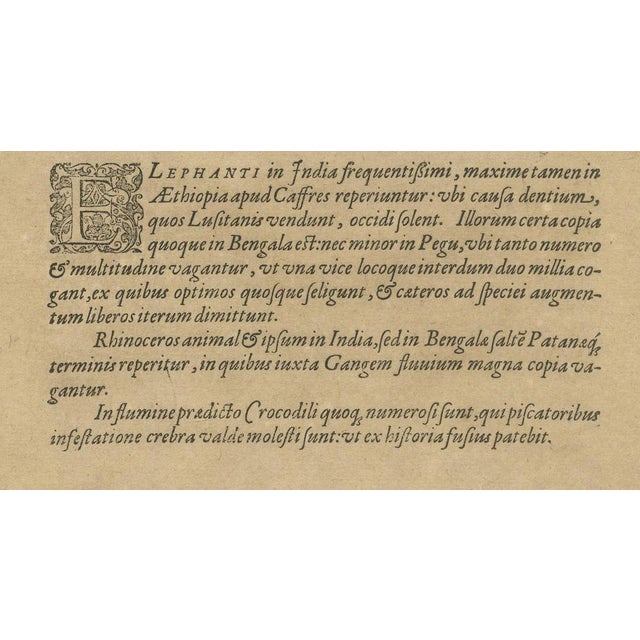 ELEPHANTI in India frequentißimi, maxime tamen in
Æthiopia apud Caffres reperiuntur: vbi cauſa dentium,
quos Luſitanis vendunt, occidi ſolent. Illorum certa copia
quoque in Bengala eſt: nec minor in Pegu, vbi tanto numero
& multitudine vagantur, vt vna vice locoque interdum duo millia co-
gant, ex quibus optimos quoſque ſeligunt, & cæteros ad ſpeciei augmen-
tum liberos iterum dimittunt.
Rhinoceros animal & ipſum in India, ſed in Bengalæ ſaltē Patanæq́ꝫ
terminis reperitur, in quibus iuxta Gangem fluuium magna copia va-
gantur.
In flumine prædicto Crocodili quoqꝫ numeroſi ſunt, qui piſcatoribus
infeſtatione crebra valde moleſti ſunt: vt ex hiſtoria fuſius patebit.